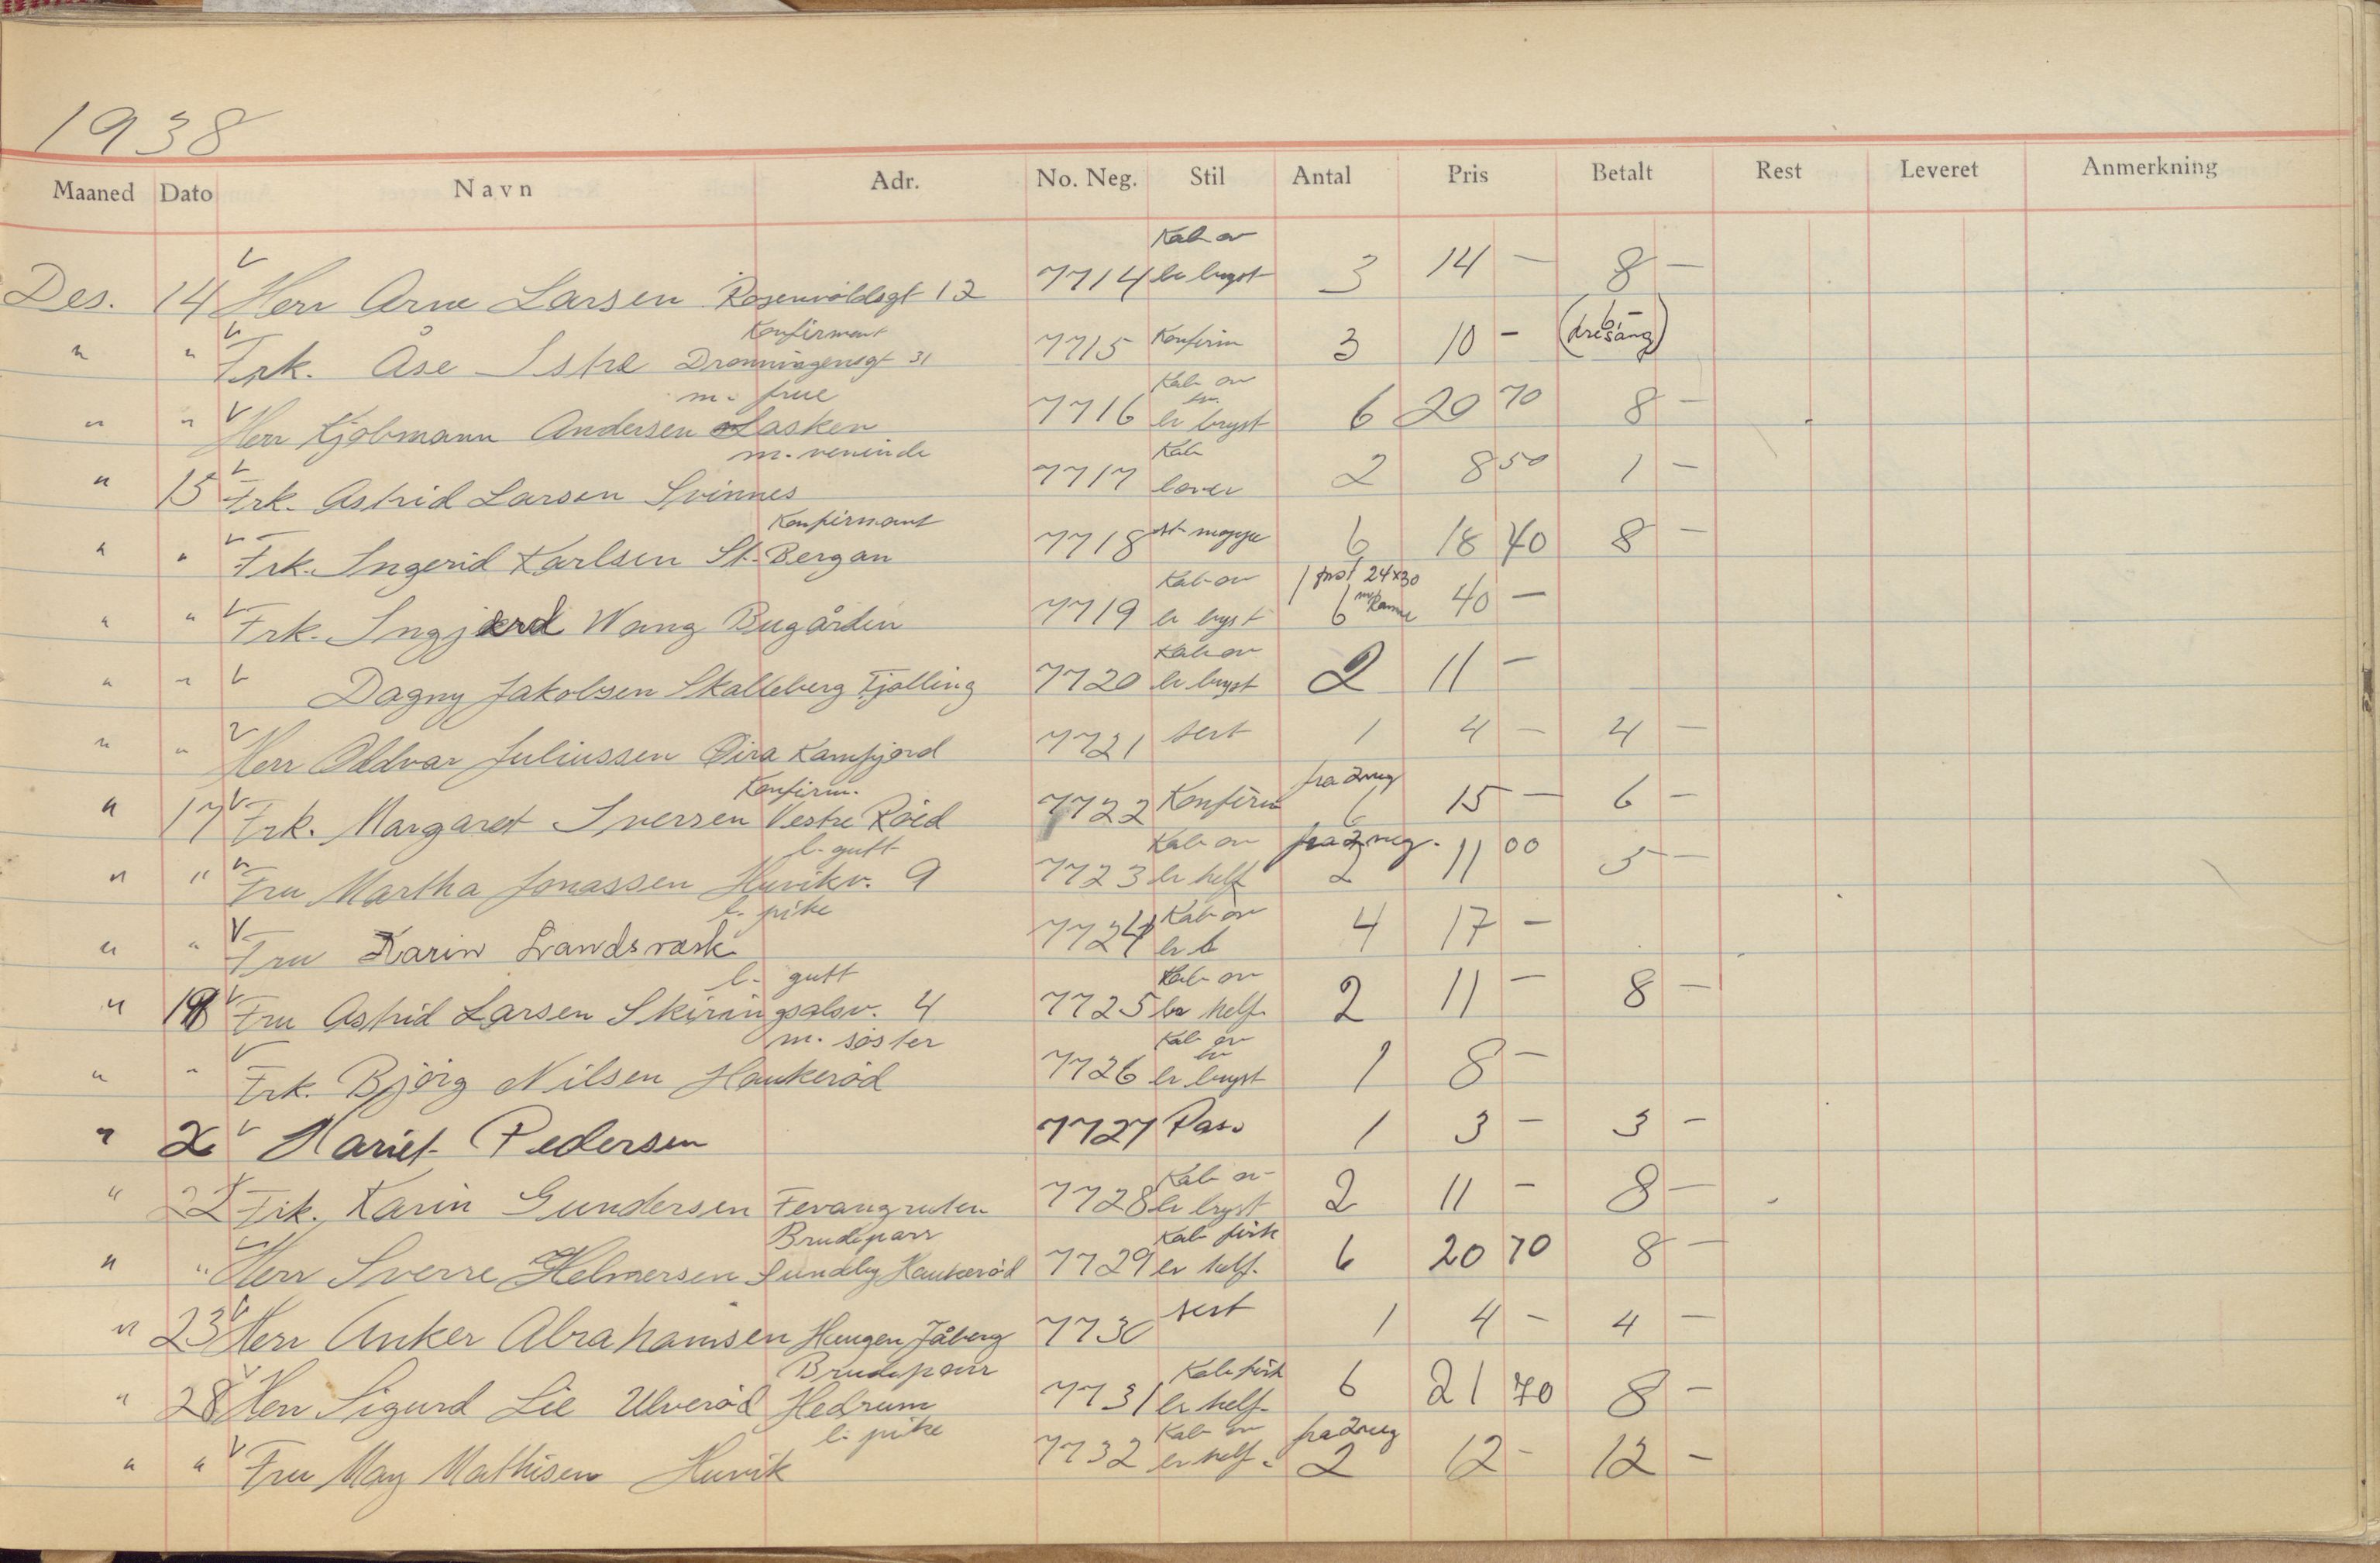 1938
Maaned Dato Navn Adr. No. Neg. Stil Antal Pris Betalt Rest Leveret Anmerkning
Kab ov
Des. 14 V Herr Arne Larsen Rosenvoldsgt 12 7714 br bryst 3 14 — 8 —
Konfirmant
" " V Frk. Åse Istre Dronningensgt 31 7715 Konfirm 3 10 —
m. frue Kab ov
br.
" " V Herr Kjøbmann Andersen Lasken 7716 br bryst 6 20 70 8 —
m. veninde Kab
" 15 V Frk. Astrid Larsen Svinnes 7717 2 8 50 1 —
Konfirmant
" " V Frk. Ingerid Karlsen St. Bergan 7718 st. mappe 6 18 40 8 —
Kab ov 1 24x30
" " V Frk. Ingjerd Wang Bugården 7719 br bryst 6 m/Ramme 40 —
Kab ov
" " V Dagny Jakobsen Skalleberg Tjølling 7720 br bryst 2 11 —
" " V Herr Oddvar Juliussen Øira Kamfjord 7721 sert 1 4 — 4 —
Konfirm. fra 2 neg
" 17 V Frk. Margaret Iversen Vestre Röed 7722 Konfirm 6 15 — 6 —
l. gutt Kab ov fra 2 neg.
" " V Fru Martha Jonassen Huvikv. 9 7723 br helf 2 11 00 5 —
l. pike Kab ov
" " V Fru Karin Landsrask 7724 br b 4 17 —
l. gutt Kab ov
" 19 V Fru Astrid Larsen Skiringsalsv. 4 7725 br helf. 2 11 — 8 —
m. søster Kab ov
br
" " V Frk. Bjørg Nilsen Haukerød 7726 br bryst 1 8 —
" V Hariet Pedersen 7727 Pass 1 3 — 3 —
Kab ov
" 22 V Frk. Karin Gundersen Fevangruten 7728 br bryst 2 11 — 8 —
Brudeparr Kab firk
" " V Herr Sverre Helmersen Sundby Haukerød 7729 br helf. 6 20 70 8 —
" 23 V Herr Anker Abrahamsen Haugen Jåberg 7730 sert 1 4 — 4 —
Brudeparr Kab firk
" 28 V Herr Sigurd Lie Ulverød Hedrum 7731 br helf. 6 21 70 8 —
l. pike Kab ov fra 2 neg
" " V Fru May Mathisen Huvik 7732 br helf. 2 12 — 12 —